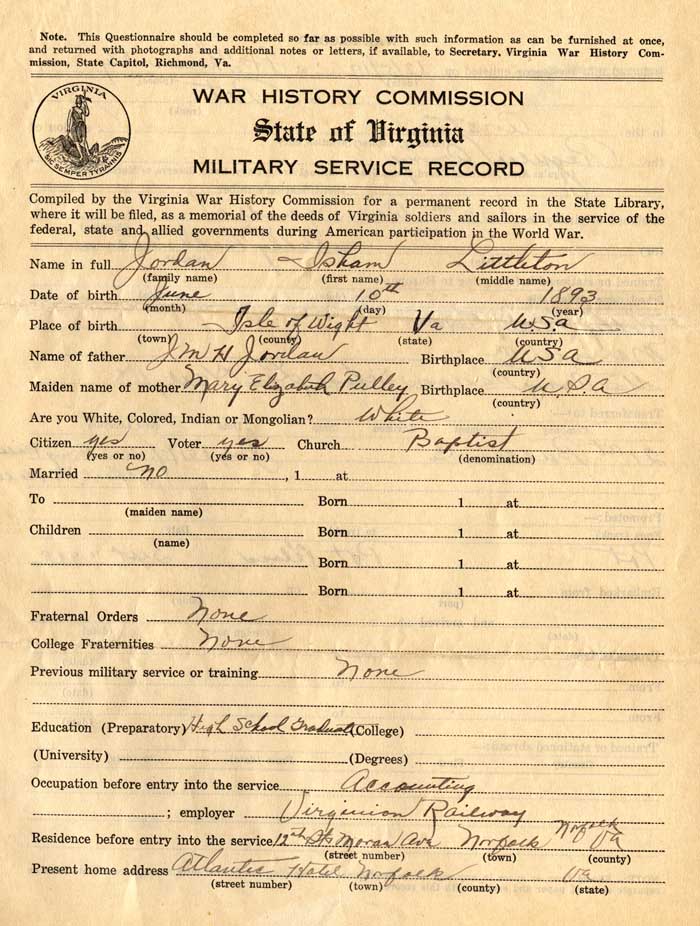 Note. This Questionnaire should be completed so far as possible with such information as can be furnished at once,
and returned with photographs and additional notes or letters, if available, to Secretary. Virginia War History Com-
mission, State Capitol, Richmond, Va.
VIRGINIA
SIC SEMPER TYRANNIS
WAR HISTORY COMMISSION
State of Virginia
MILITARY SERVICE RECORD
Compiled by the Virginia War History Commission for a permanent record in the State Library,
where it will be filed, as a memorial of the deeds of Virginia soldiers and sailors in the service of the
federal, state and allied governments during American participation in the World War.
Name in full Jordan Isham Littleton
(family name) (first name) (middle name)
Date of birth June 10th 1893
(month) (day) (year)
Place of birth Isle of Wight Va U.S.a
(town) (county) (state) (country)
Name of father J.M H Jordan Birthplace U.S.A
(country)
Maiden name of mother Mary Elizabeth Pulley Birthplace U.S.A
(country)
Are you White, Colored, Indian or Mongolian? White
Citizen yes Voter yes Church Baptist
(yes or no) (yes or no) (denomination)
Married no , 1 at
To Born 1 at
(maiden name)
Children Born 1 at
(name)
Born 1 at
Born 1 at
Fraternal Orders None
College Fraternities None
Previous military service or training None
Education (Preparatory) High School Graduate (College)
(University) (Degrees)
Occupation before entry into the service Accounting
; employer Virginian Railway
Residence before entry into the service 12th St Moran Ave Norfolk Norfolk Va
(street number) (town) (county)
Present home address Atlantic Hotel Norfolk Va
(street number) (town) (county) (state)